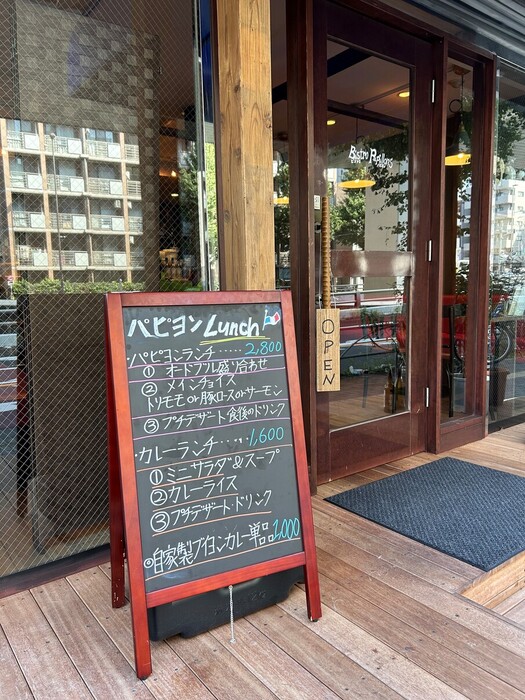 パピヨン Lunch
・パピヨンランチ・・・・・2,800
① オードブル盛り合わせ
② メインチョイス
トリモモ or 豚ロース or サーモン
③ プチデザート・食後のドリンク
・カレーランチ・・・・1,600
① ミニサラダ&スープ
② カレーライス
③ プチデザート・ドリンク
◎自家製ブイヨンカレー単品 1,000
Bistro Papillons
OPEN